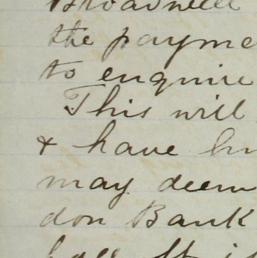 Broadwell
the payme
to enquire
This will
& have
may deem
don Bank